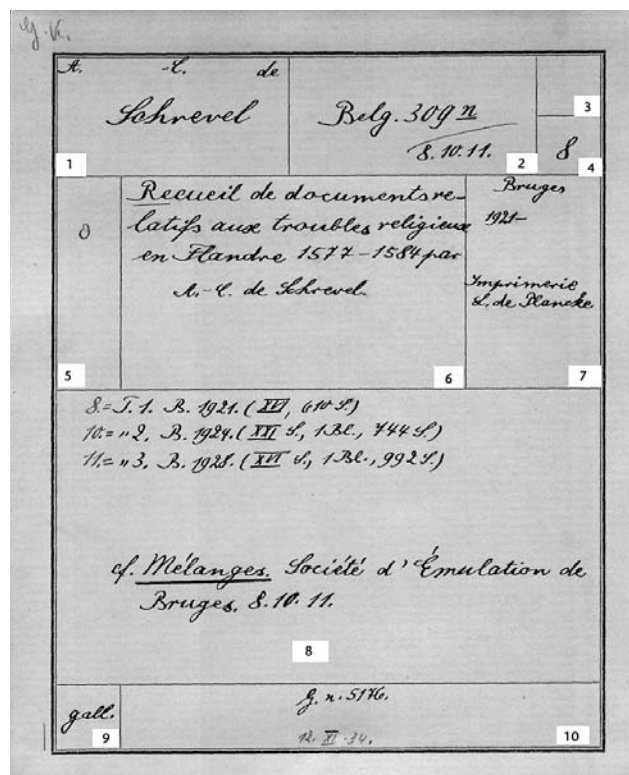 G. K.
A. -C. de
Schrevel
1
Belg. 309 n
8. 10. 11.
2
3
8
4
0
5
Recueil de documents re-
latifs aux troubles religieux
en Flandre 1577-1584 par
A.-C. de Schrevel.
6
Bruges
1921-
Imprimerie
L. de Plancke
7
8.= T. 1. B. 1921. (XVI, 610 S.)
10.= " 2. B. 1924. (XXI S., 1 Bl., 744 S.)
11.= " 3. B. 1928. (XVI S., 1 Bl., 992 S.)
cf. Mélanges. Société d'Émulation de
Bruges. 8. 10. 11.
8
gall.
9
G. n. 5176.
12. XI. 34.
10